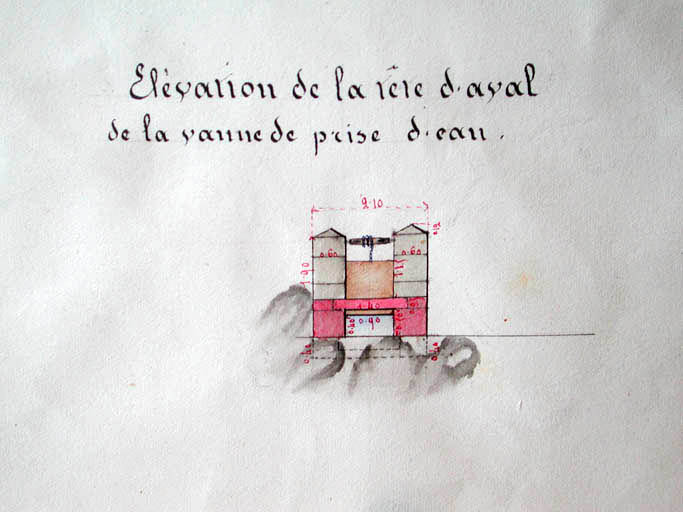 Elèvation de la tête d'aval
de la vanne de prise d'eau.
2.10
0.60
0.60
1.90
1.40
0.90
0.40
0.40